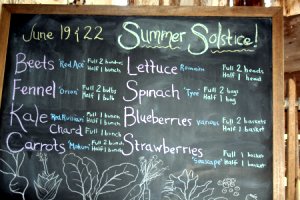 June 19 & 22 Summer Solstice!
Beets "Red Ace" Full 2 bunches
Half 1 bunch
Fennel "Orion" Full 2 bulbs
Half 1 bulb
Kale Red Russian Full 1 bunch
Chard Half 1 bunch
Carrots "Mokum" Full 2 bunch
Half 1 bunch
Lettuce Romaine Full 2 heads
Half 1 head
Spinach "Tyee" Full 2 bags
Half 1 bag
Blueberries various Full 2 baskets
Half 1 basket
Strawberries
"Seascape" Full 1 basket
Half 1 basket